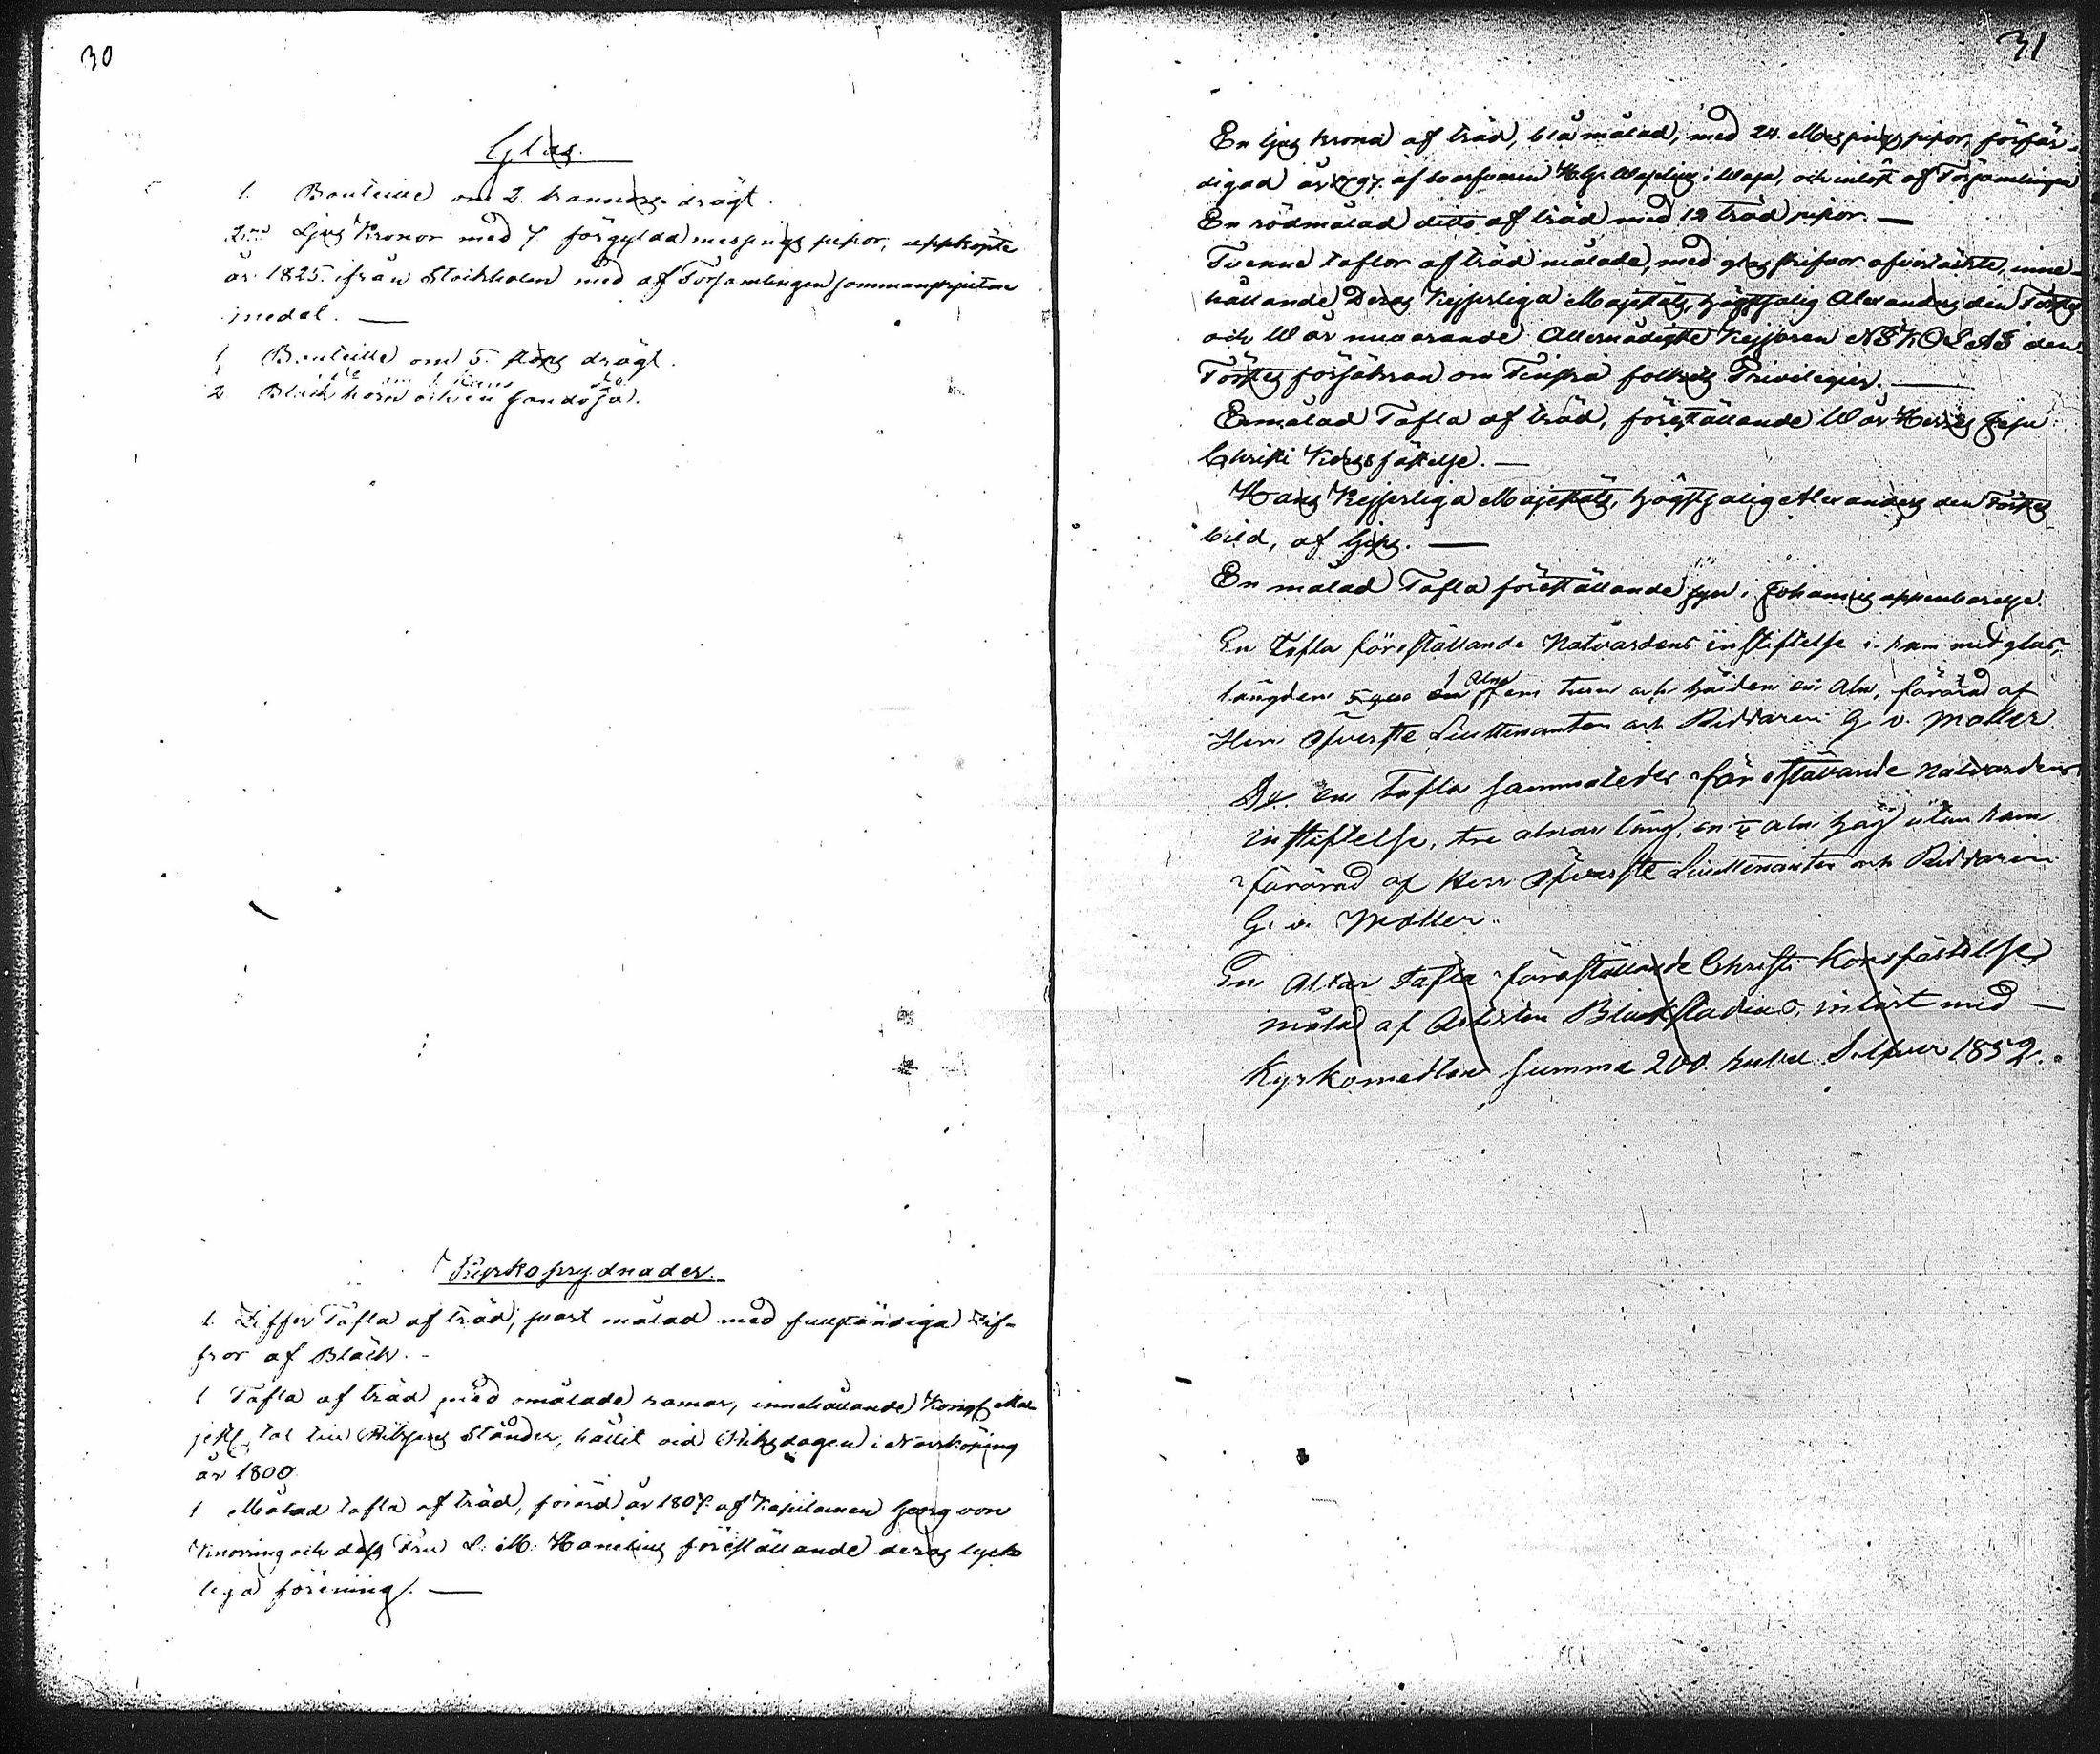 30
Glas.
1. Bouteille om 2. kannors drägt.
2ne Ljus Kronor med 7 förgylda mespings pipor, uppköpte
år 1825. ifrån Stockholm med af Församlingen sammanskjutne
medel. —
1 Bouteille om 5. stops drägt.
2 Bläckhorn och en sandosa.
Kyrkoprydnader.
1. Ziffer Tafla af träd, svart målad med fullständiga Zif-
fror af Bläck. -
1 Tafla af träd med omålade ramar, innehållande Kongl. Ma-
jestts tal till Riksens Ständer, hållit vid Riksdagen i Norrköping
år 1800.
1 Målad tafla af träd, förärd år 1807. af Kapitainen Georg von
Knorring och dess Fru L. M. Hameling föreställande deras lyck-
liga förening. —
31
En ljus krona af träd, blå målad, med 24. Mespings pipor, förfär-
digad år 1797. af i Wasa, och inlöst af Församlingen
En rödmålad ditto af träd med 12 träd pipor. —
Tvenne taflor af träd målade, med glas skifvor öfvertäckte, inne-
hållande Deras Kejserliga Majestäts, högstsalig Alexanders den Förstes
och Wår nuvarande Allernådigste Kejsaren NIKOLAI den
Förstes försäkran om Finska folkets Privilegier. —
En målad Tafla af träd, föreställande Wår Herres Jesu
Christi Korsfästelse. —
Hans Kejserliga Majestäts, högstsalig Alexanders den Förstes
bild, af Gips. —
En målad Tafla föreställande syn i Johannis uppenbarelse.
En Tafla föreställande Natvardens instiftelse i ram med glas,
längden 1 Aln fem tum och höjden en Aln, förärad af
Herr Öfverste Lieuttenanten och Riddaren G. v. Moller
Do en Tafla sammaledes föreställande Natvardens
instiftelse, tre alnar lång, en ¼ aln hög utan ram
förärad af Herr Öfverste Lieuttenanten och Riddaren
G. v. Moller.
En Altar Tafla föreställande Christi Korsfästelse,
målad af Artisten Blackstadius, inlöst med —
Kyrkomedlen Summa 200 rubel Silfver 1852.